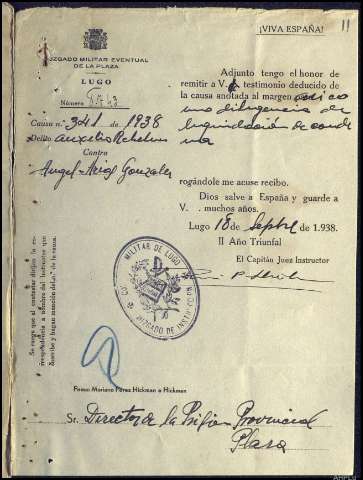 ¡VIVA ESPAÑA!
11
JUZGADO MILITAR EVENTUAL
DE LA PLAZA
LUGO
Número
Causa n.º 341 de 1938
Delito auxilio Rebelion
Contra
Angel Arias Gonzalez
Adjunto tengo el honor de
remitir a V. testimonio deducido de
la causa anotada al margen
mo diligencia de
liquidación de conde
na
rogándole me acuse recibo.
Dios salve a España y guarde a
V. muchos años.
Lugo 18 de Septbre de 1938.
II Año Triunfal
El Capitán Juez Instructor
MILITAR DE LUGO
JUZGADO DE
Se ruega que al contestar dirijan la co-
rrespondencia a nombre del Instructor que
suscribe y hagan mención del n.º de la causa.
Fondo Mariano Pérez Hickman e Hickman
Sr. Director de la Prisión Provincial
Plaza